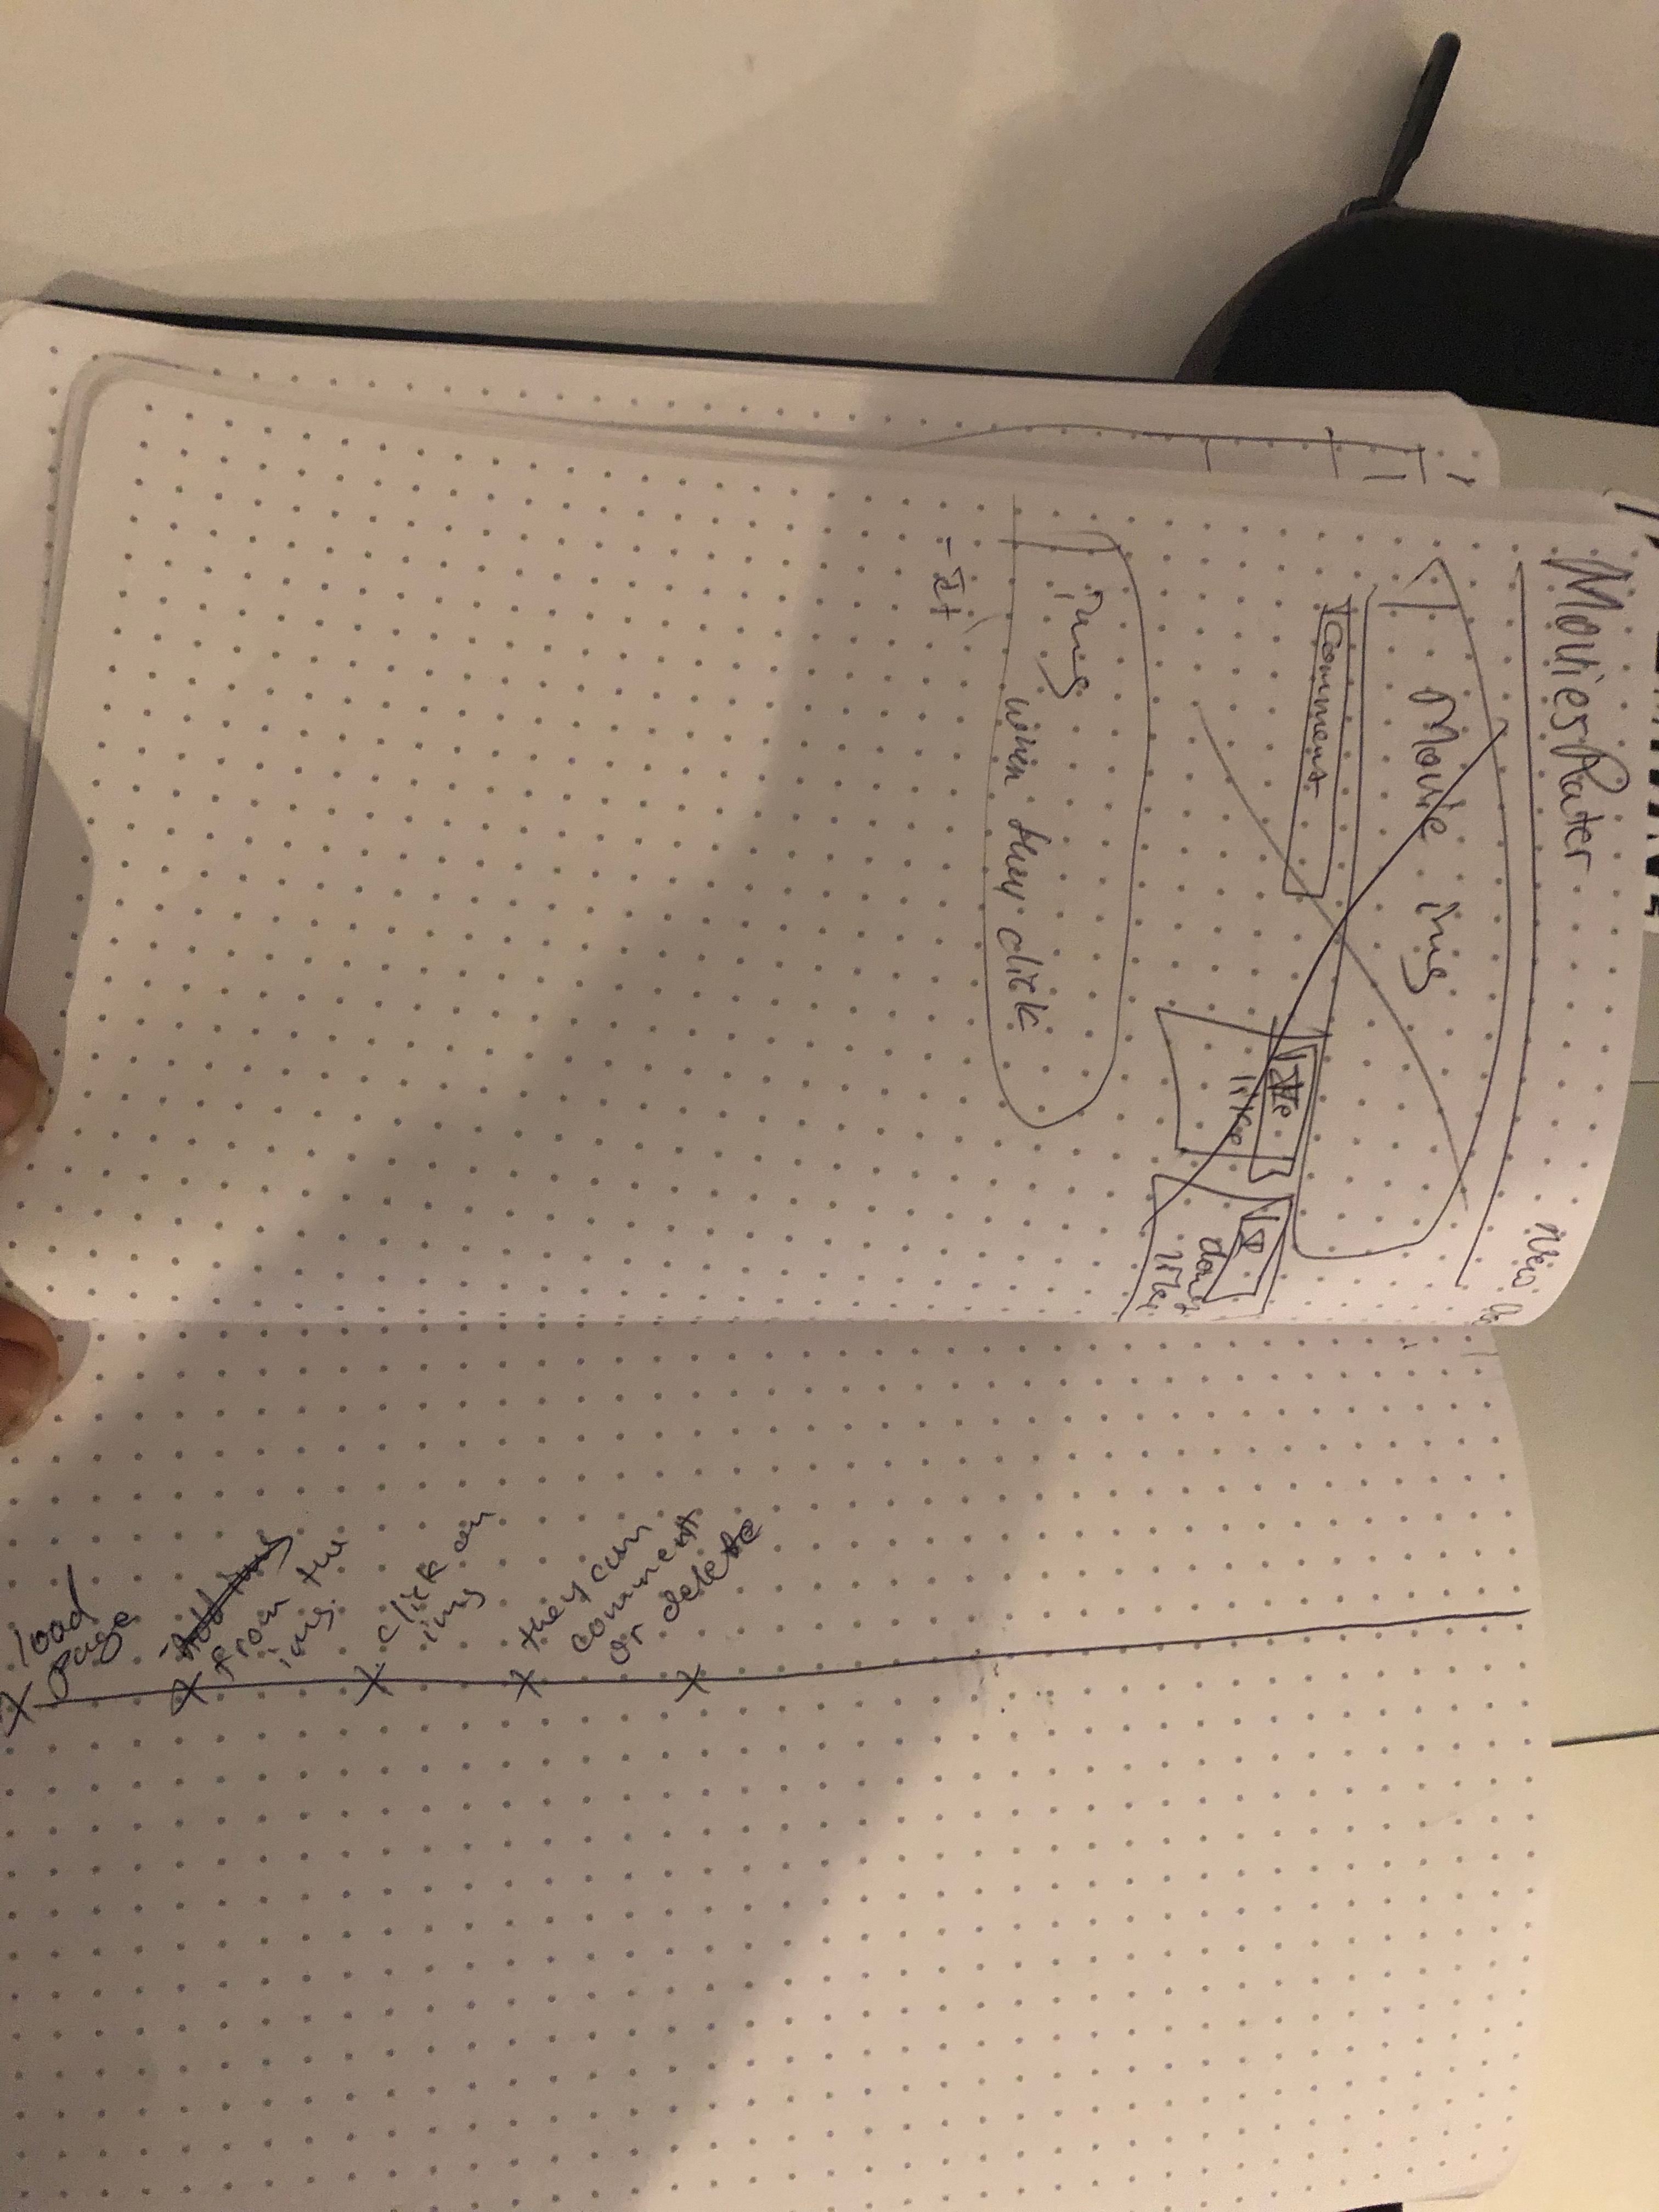 MoviesRater
New
Movie img
Comment
like
don't
like
img
when they click
load
page
from the
img.
click on
img
they can
comment
or delete